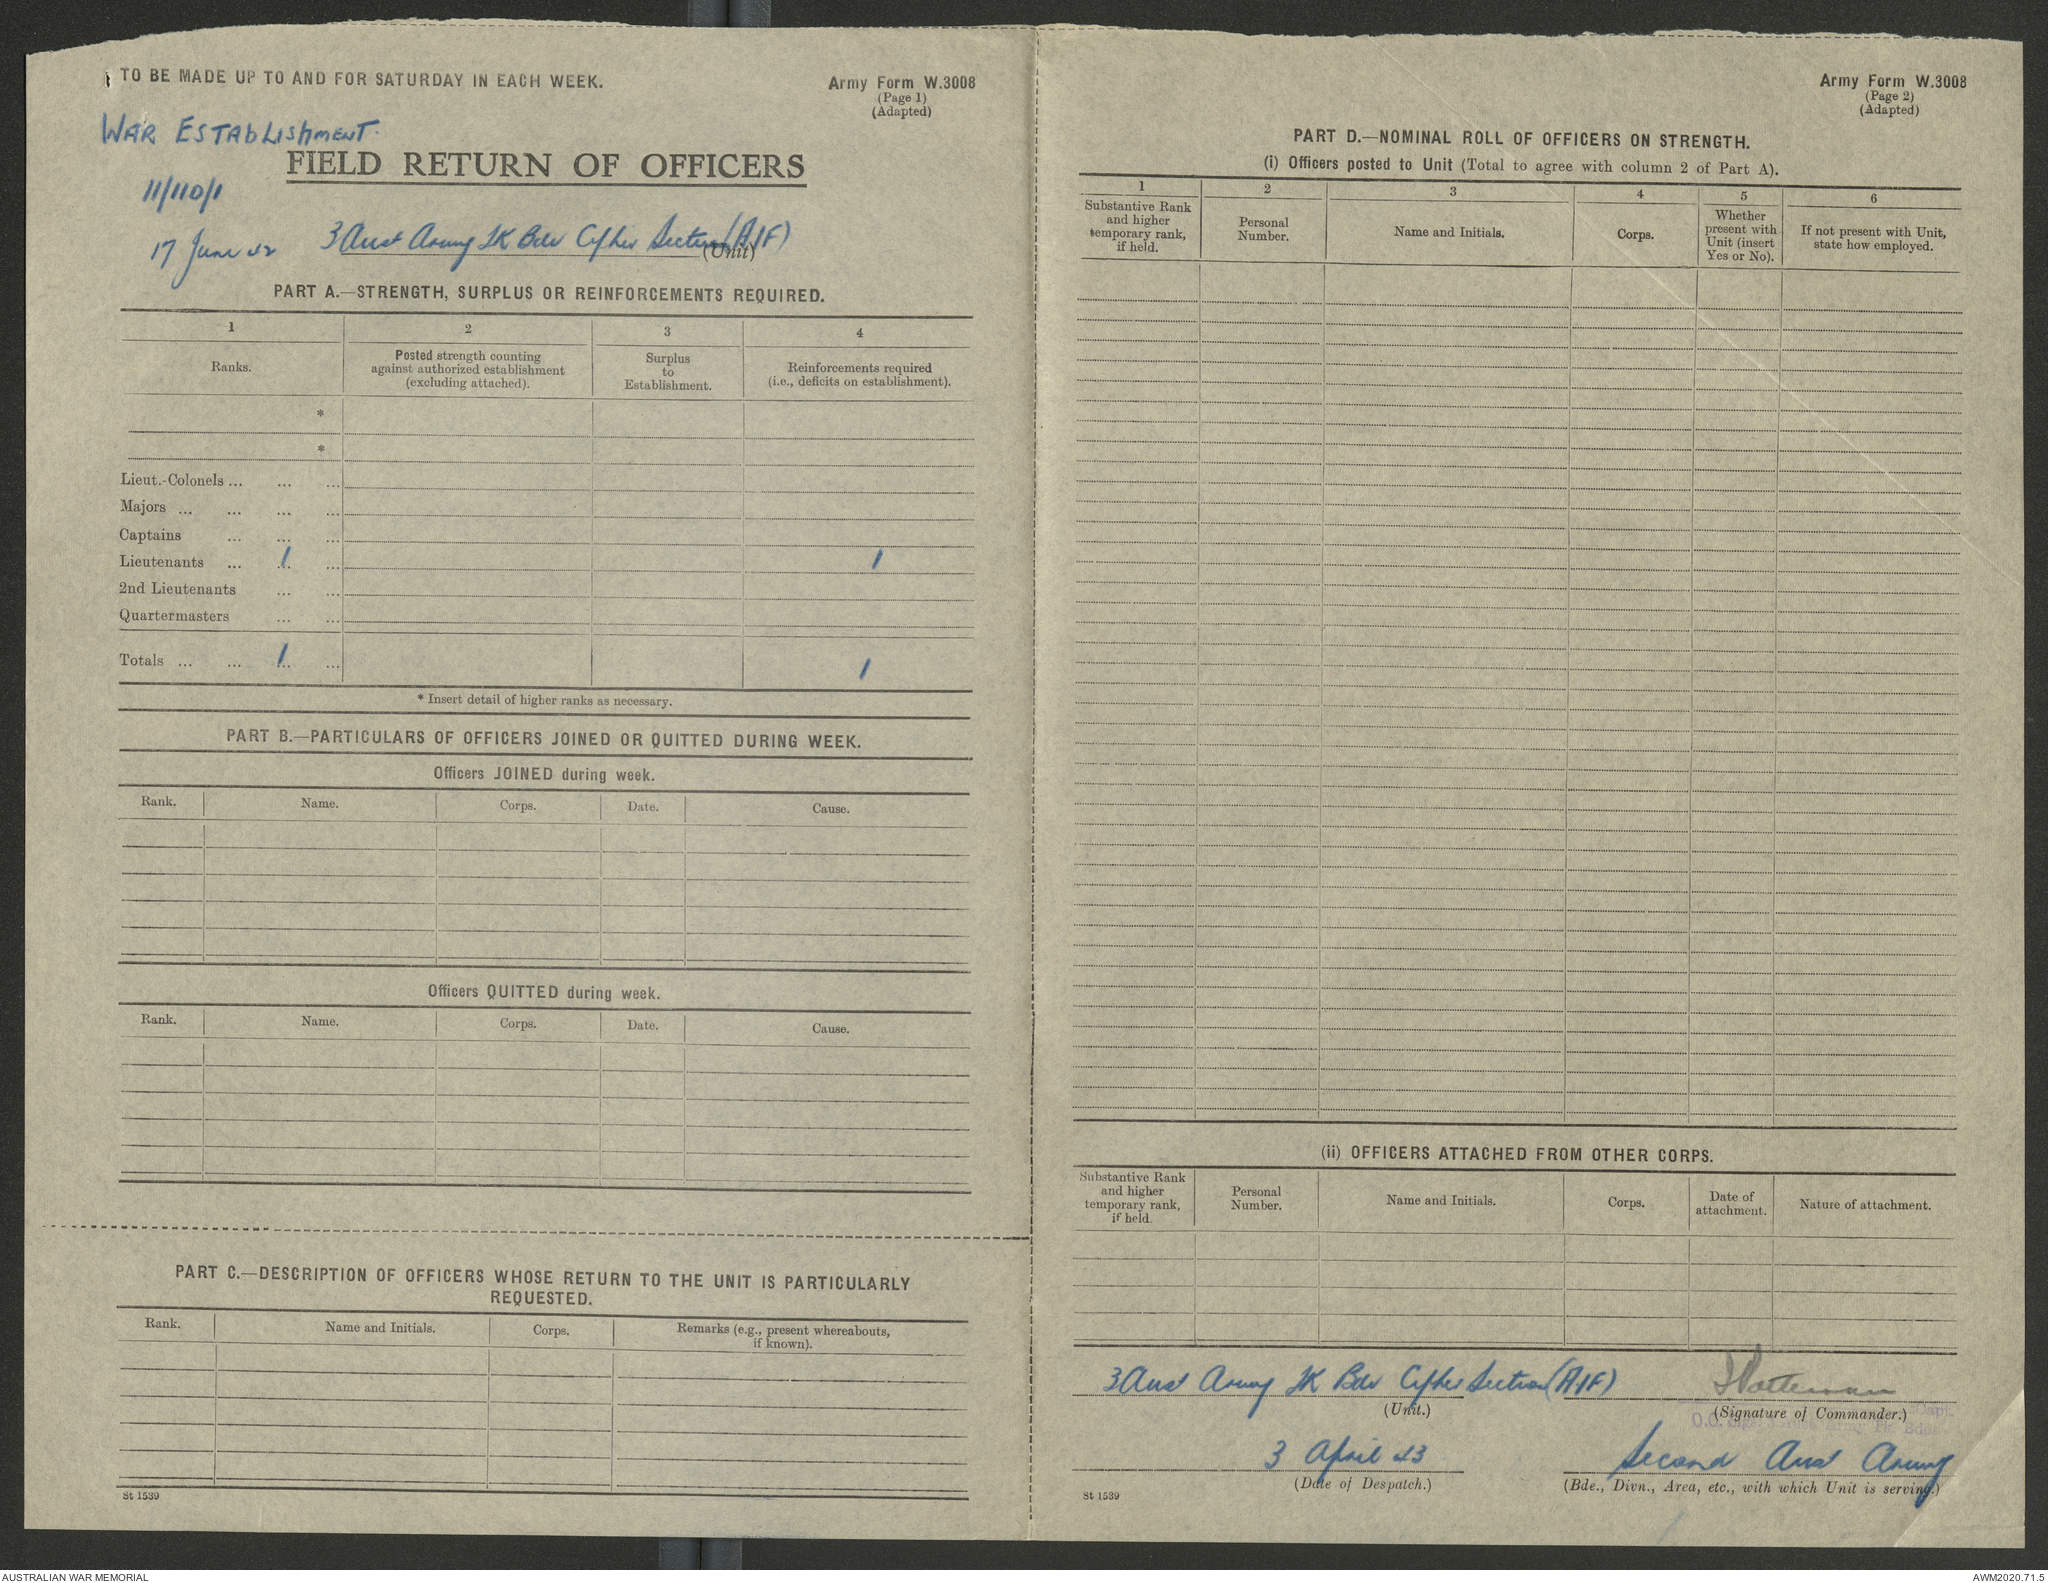 TO BE MADE UP TO AND FOR SATURDAY IN EACH WEEK.
Army Form W.3008
(Page 1)
(Adapted)
WAR ESTABLISHMENT
FIELD RETURN OF OFFICERS
11/110/1
17 June 42
3 Aust Army TK Bde Cipher Section (AIF)
(Unit)
PART A.—STRENGTH, SURPLUS OR REINFORCEMENTS REQUIRED.
1 2 3 4
Ranks.
Posted strength counting against authorized establishment (excluding attached).
Surplus to Establishment.
Reinforcements required (i.e., deficits on establishment).
*
*
Lieut.-Colonels ... ... ...
Majors ... ... ... ...
Captains ... ... ...
Lieutenants ... 1 ... 1
2nd Lieutenants ... ...
Quartermasters ... ...
Totals ... ... 1 ... 1
* Insert detail of higher ranks as necessary.
PART B.—PARTICULARS OF OFFICERS JOINED OR QUITTED DURING WEEK.
Officers JOINED during week.
Rank. Name. Corps. Date. Cause.
Officers QUITTED during week.
Rank. Name. Corps. Date. Cause.
PART C.—DESCRIPTION OF OFFICERS WHOSE RETURN TO THE UNIT IS PARTICULARLY
REQUESTED.
Rank. Name and Initials. Corps. Remarks (e.g., present whereabouts, if known).
St 1539
Army Form W.3008
(Page 2)
(Adapted)
PART D.—NOMINAL ROLL OF OFFICERS ON STRENGTH.
(i) Officers posted to Unit (Total to agree with column 2 of Part A).
1 2 3 4 5 6
Substantive Rank and higher temporary rank, if held.
Personal Number.
Name and Initials.
Corps.
Whether present with Unit (insert Yes or No).
If not present with Unit, state how employed.
(ii) OFFICERS ATTACHED FROM OTHER CORPS.
Substantive Rank and higher temporary rank, if held.
Personal Number.
Name and Initials.
Corps.
Date of attachment.
Nature of attachment.
3 Aust Army TK Bde Cipher Section (AIF)
(Unit.)
(Signature of Commander.)
Capt.
O.C.
3 April 43
(Date of Despatch.)
Second Aust Army
(Bde., Divn., Area, etc., with which Unit is serving.)
St 1539
AUSTRALIAN WAR MEMORIAL
AWM2020.71.5